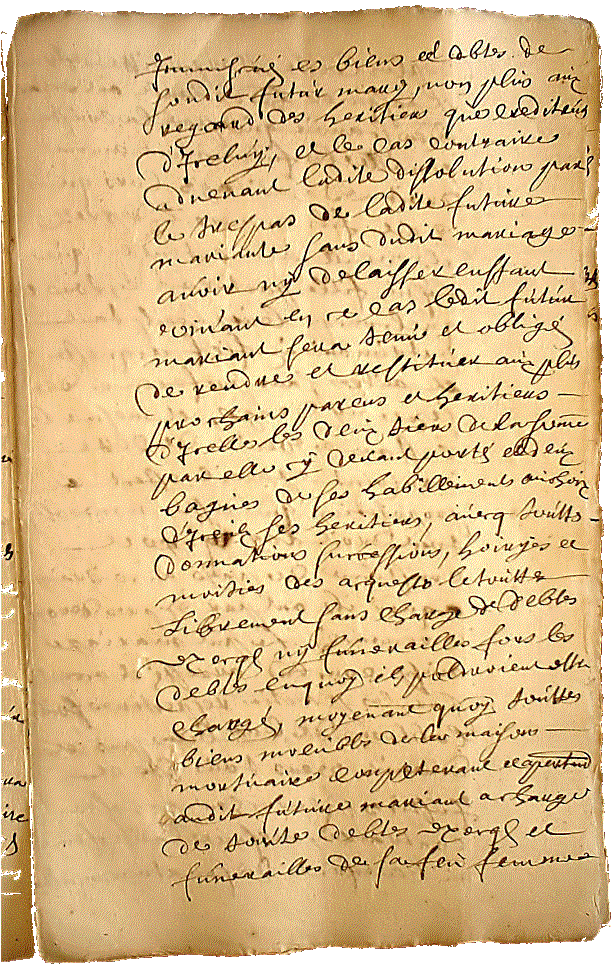 Immiscué es biens et debtes de
sondit futur mary, non plus aux
regard des heritiers que crediteurs
d'Iceluy, et le cas contraire
advenant ladite dissolution par
le trespas de ladite future
mariante sans dudit mariage
avoir ny delaisser enffant
vivant en ce cas ledit futur
mariant sera tenu et obligé
de rendre et restituer aux plus
prochains parens et heritiers
d'Icelles les deux tiers de la somme
par elle cy devant porté et deux
bagues de ses habillements au choix
d'Iceux ses heritiers, avecq touttes
donnations successions, hoiryes et
moitiés des acquests le touttes
Librement sans charge de debtes
ny funerailles fors les
debtes enquoy ils poldroient estre
chargé, moyenant quoy touttes
biens meubles de la maison
mortuaire competeront et apertiend
audit future mariant a charge
de toute debtes et
funerailles de sa feu femme